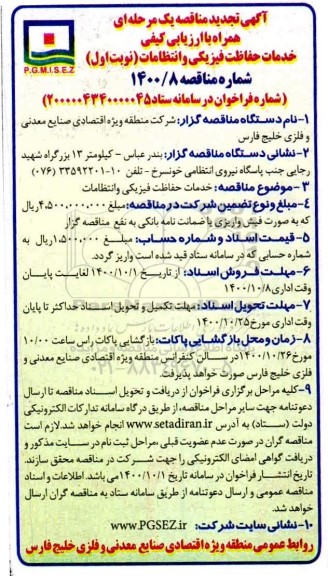 آگهی تجدید مناقصه یک مرحله ای
همراه با ارزیابی کیفی
خدمات حفاظت فیزیکی و انتظامات (نوبت اول)
P.G.M.I.S.E.Z
شماره مناقصه ۱۴۰۰/۸
(شماره فراخوان در سامانه ستاد ۲۰۰۰۰۰۴۳۴۰۰۰۰۰۴۵)
۱-نام دستگاه مناقصه گزار: شرکت منطقه ویژه اقتصادی صنایع معدنی
و فلزی خلیج فارس
۲-نشانی دستگاه مناقصه گزار: بندرعباس - کیلومتر ۱۳ بزرگراه شهید
رجایی جنب پاسگاه نیروی انتظامی خونسرخ - تلفن ۱۰-۳۳۵۹۲۲۰۱ (۰۷۶)
۳-موضوع مناقصه: خدمات حفاظت فیزیکی وانتظامات
۴-مبلغ ونوع تضمین شرکت در مناقصه: مبلغ ۴،۵۰۰،۰۰۰،۰۰۰ ریال
که به صورت فیش واریزی یا ضمانت نامه بانکی به نفع مناقصه گزار
۵-قیمت اسناد و شماره حساب: مبلغ ۱،۵۰۰،۰۰۰ ریال به
شماره حسابی که در سامانه ستاد قید شده است واریز گردد.
۶-مهلت فروش اسناد: از تاریخ ۱۴۰۰/۱۰/۱ لغایت پایان
وقت اداری ۱۴۰۰/۱۰/۸
۷-مهلت تحویل اسناد: مهلت تکمیل و تحویل اسناد حداکثر تا پایان
وقت اداری مورخ ۱۴۰۰/۱۰/۲۵
۸-زمان ومحل بازگشایی پاکات: بازگشایی پاکات راس ساعت ۱۰/۰۰
مورخ ۱۴۰۰/۱۰/۲۶ در سالن کنفرانس منطقه ویژه اقتصادی صنایع معدنی و
فلزی خلیج فارس صورت خواهد پذیرفت
۹-کلیه مراحل برگزاری فراخوان از دریافت و تحویل اسناد مناقصه تا ارسال
دعوتنامه جهت سایر مراحل مناقصه، از طریق درگاه سامانه تدارکات الکترونیکی
دولت (ستاد) به آدرس www.setadiran.ir انجام خواهد شد. لازم است
مناقصه گران در صورت عدم عضویت قبلی ،مراحل ثبت نام در سایت مذکور و
دریافت گواهی امضای الکترونیکی را جهت شرکت در مناقصه محقق سازند.
تاریخ انتشار فراخوان در سامانه تاریخ ۱۴۰۰/۱۰/۱ می باشد. اطلاعات و اسناد
مناقصه عمومی و ارسال دعوتنامه از طریق سامانه ستاد به مناقصه گران ارسال
خواهد شد.
۱۰-نشانی سایت شرکت: www.PGSEZ.ir
روابط عمومی منطقه ویژه اقتصادی صنایع معدنی و فلزی خلیج فارس